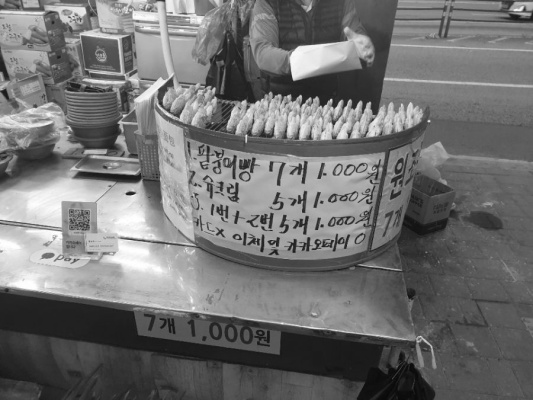 1. 팥붕어빵 7개 1.000원
2. 슈크림 5개 1.000원
3. 1번+2번 5개 1.000원
카드X 이체및 카카오페이 O
원
7개
pay
7개 1,000원